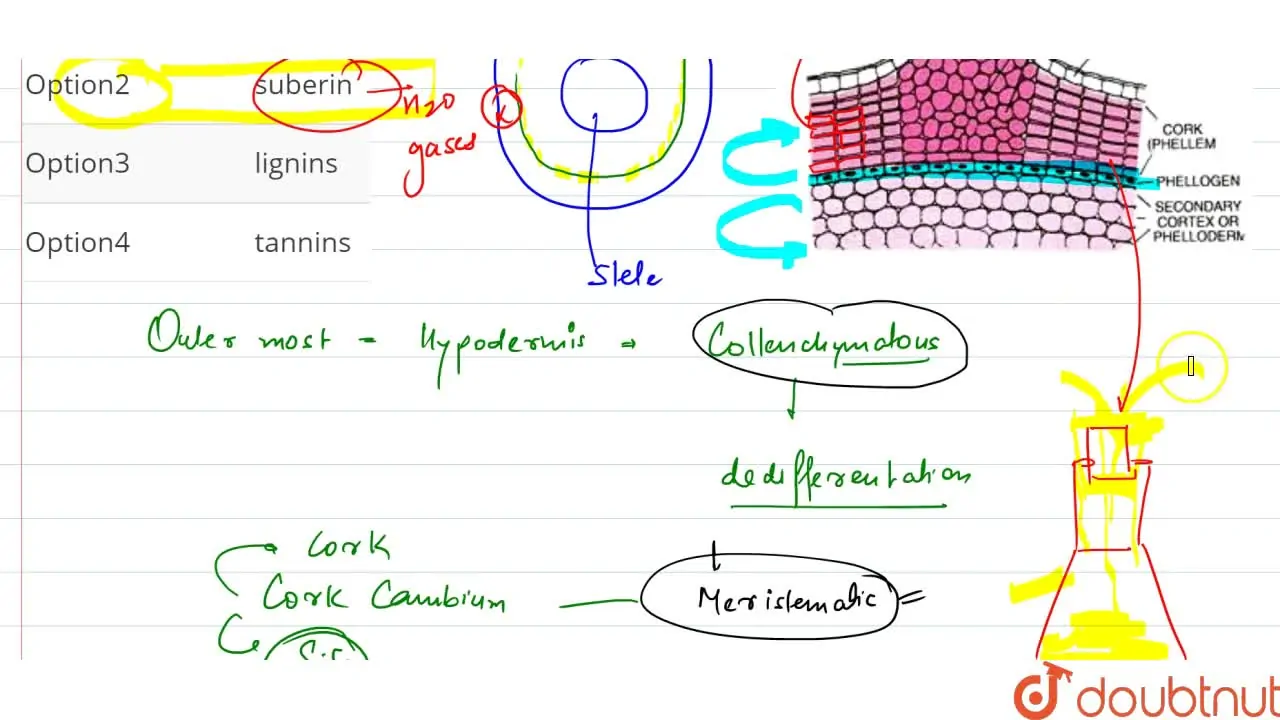 Option2 suberin
H2O
gases
Option3 lignins
Option4 tannins
Stele
CORK
(PHELLEM
PHELLOGEN
SECONDARY
CORTEX OR
PHELLODERM
Outer most - Hypodermis → Collenchymatous
dedifferentation
Cork
Cork Cambium — Meristematic =
doubtnut